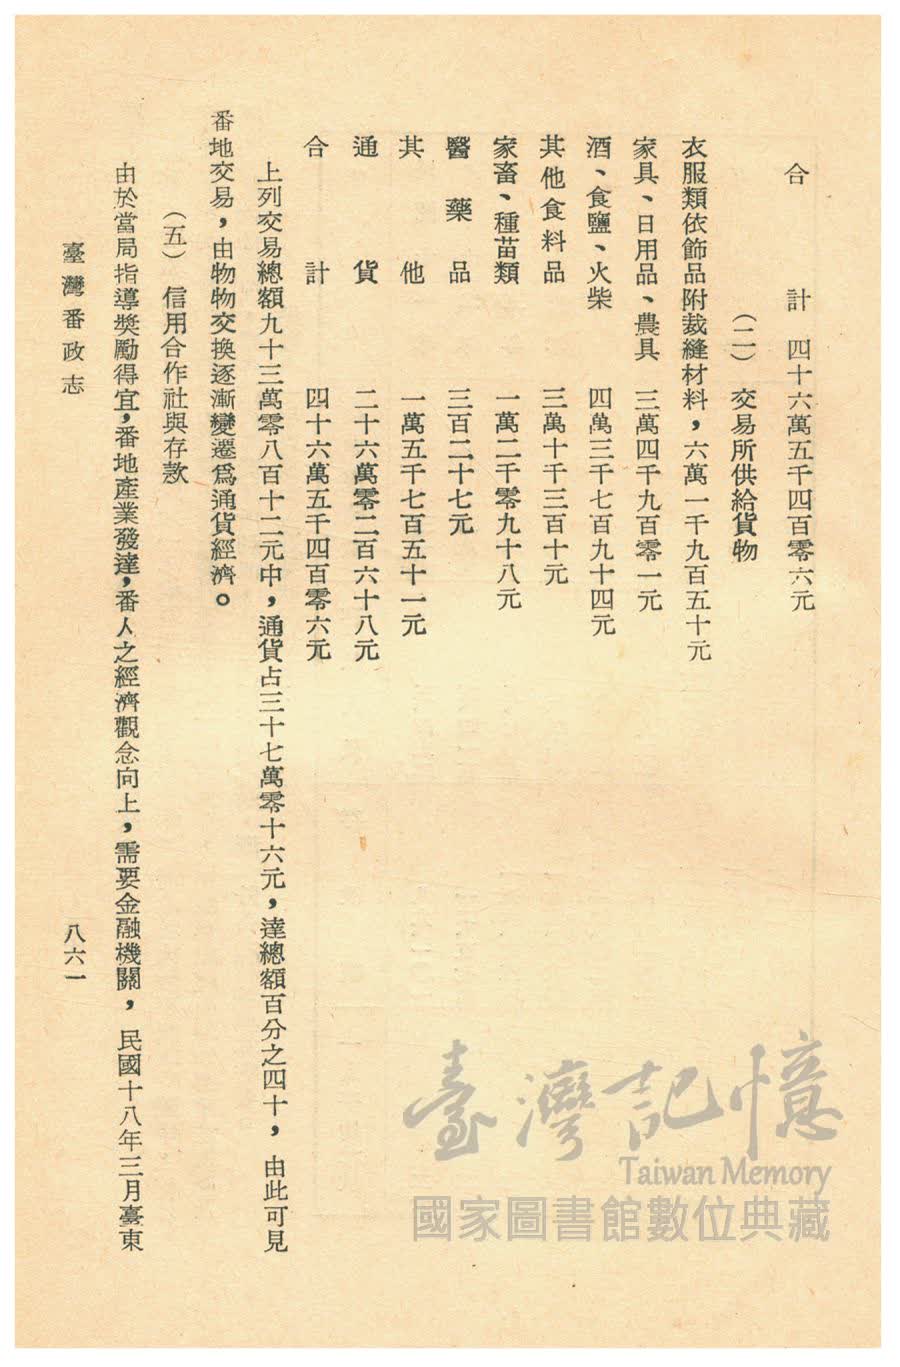 合計 四十六萬五千四百零六元
(二) 交易所供給貨物
衣服類依飾品附裁縫材料，六萬一千九百五十元
家具、日用品、農具 三萬四千九百零一元
酒、食鹽、火柴 四萬三千七百九十四元
其他食料品 三萬十千三百十元
家畜、種苗類 一萬二千零九十八元
醫藥品 三百二十七元
其他 一萬五千七百五十一元
通貨 二十六萬零二百六十八元
合計 四十六萬五千四百零六元
上列交易總額九十三萬零八百十二元中，通貨占三十七萬零十六元，達總額百分之四十，由此可見
番地交易，由物物交換逐漸變遷爲通貨經濟。
(五) 信用合作社與存款
由於當局指導獎勵得宜，番地產業發達，番人之經濟觀念向上，需要金融機關，民國十八年三月臺東
臺灣番政志
八六一
臺灣記憶
Taiwan Memory
國家圖書館數位典藏